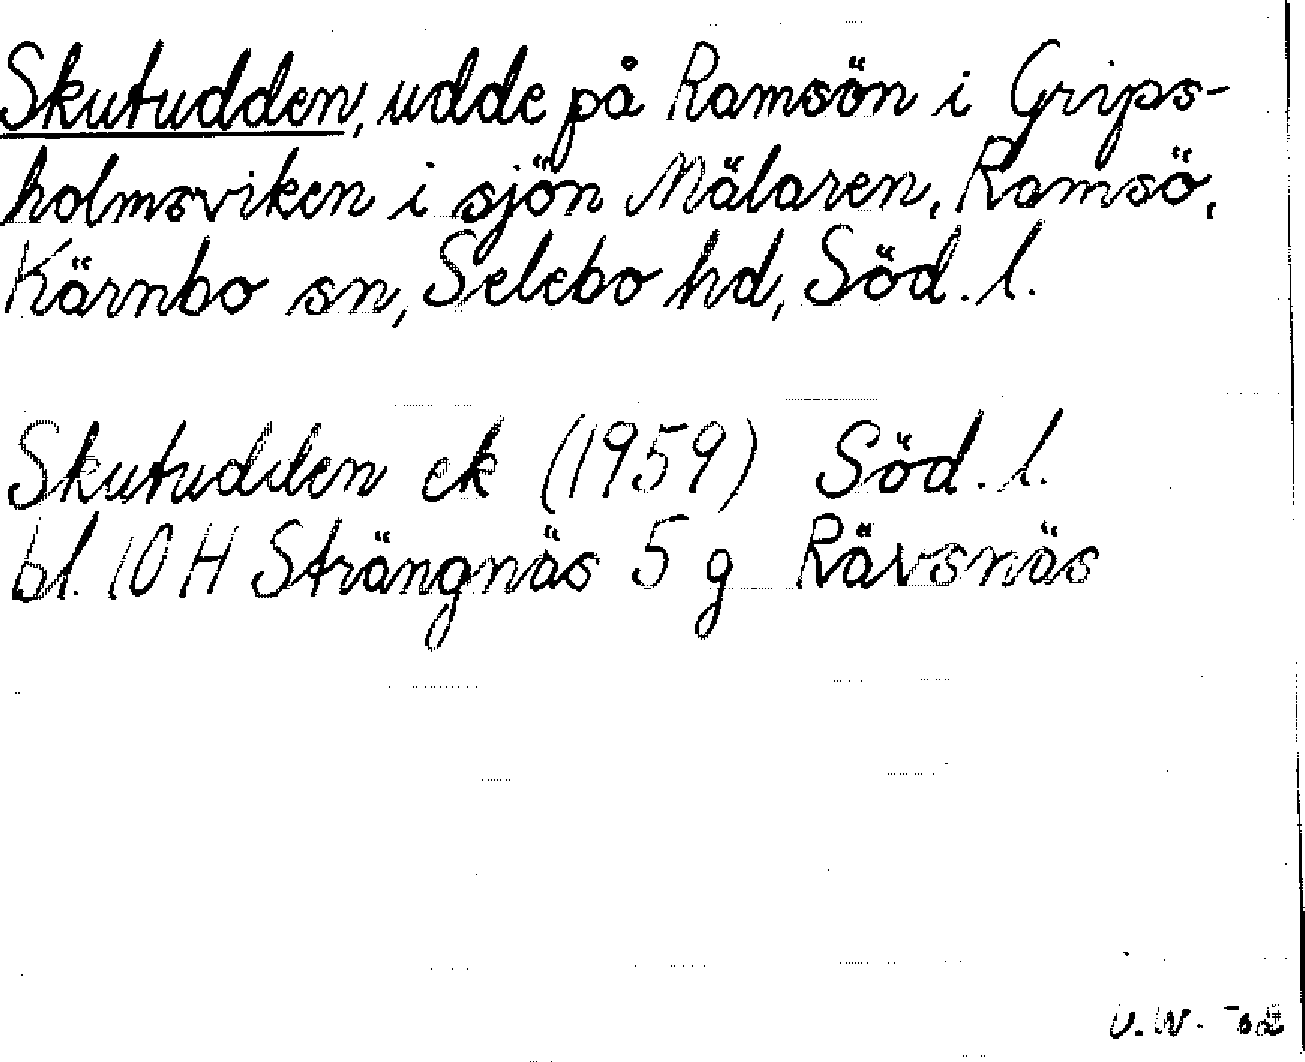 Skutudden, udde på Ramsön i Grips-
holmsviken i sjön Mälaren, Ramsö,
Kärnbo sn, Selebo hd, Söd. l.
Skutudden ek (1959) Söd. l.
bl. 10 H Strängnäs 5 g Rävsnäs
U.W. -62